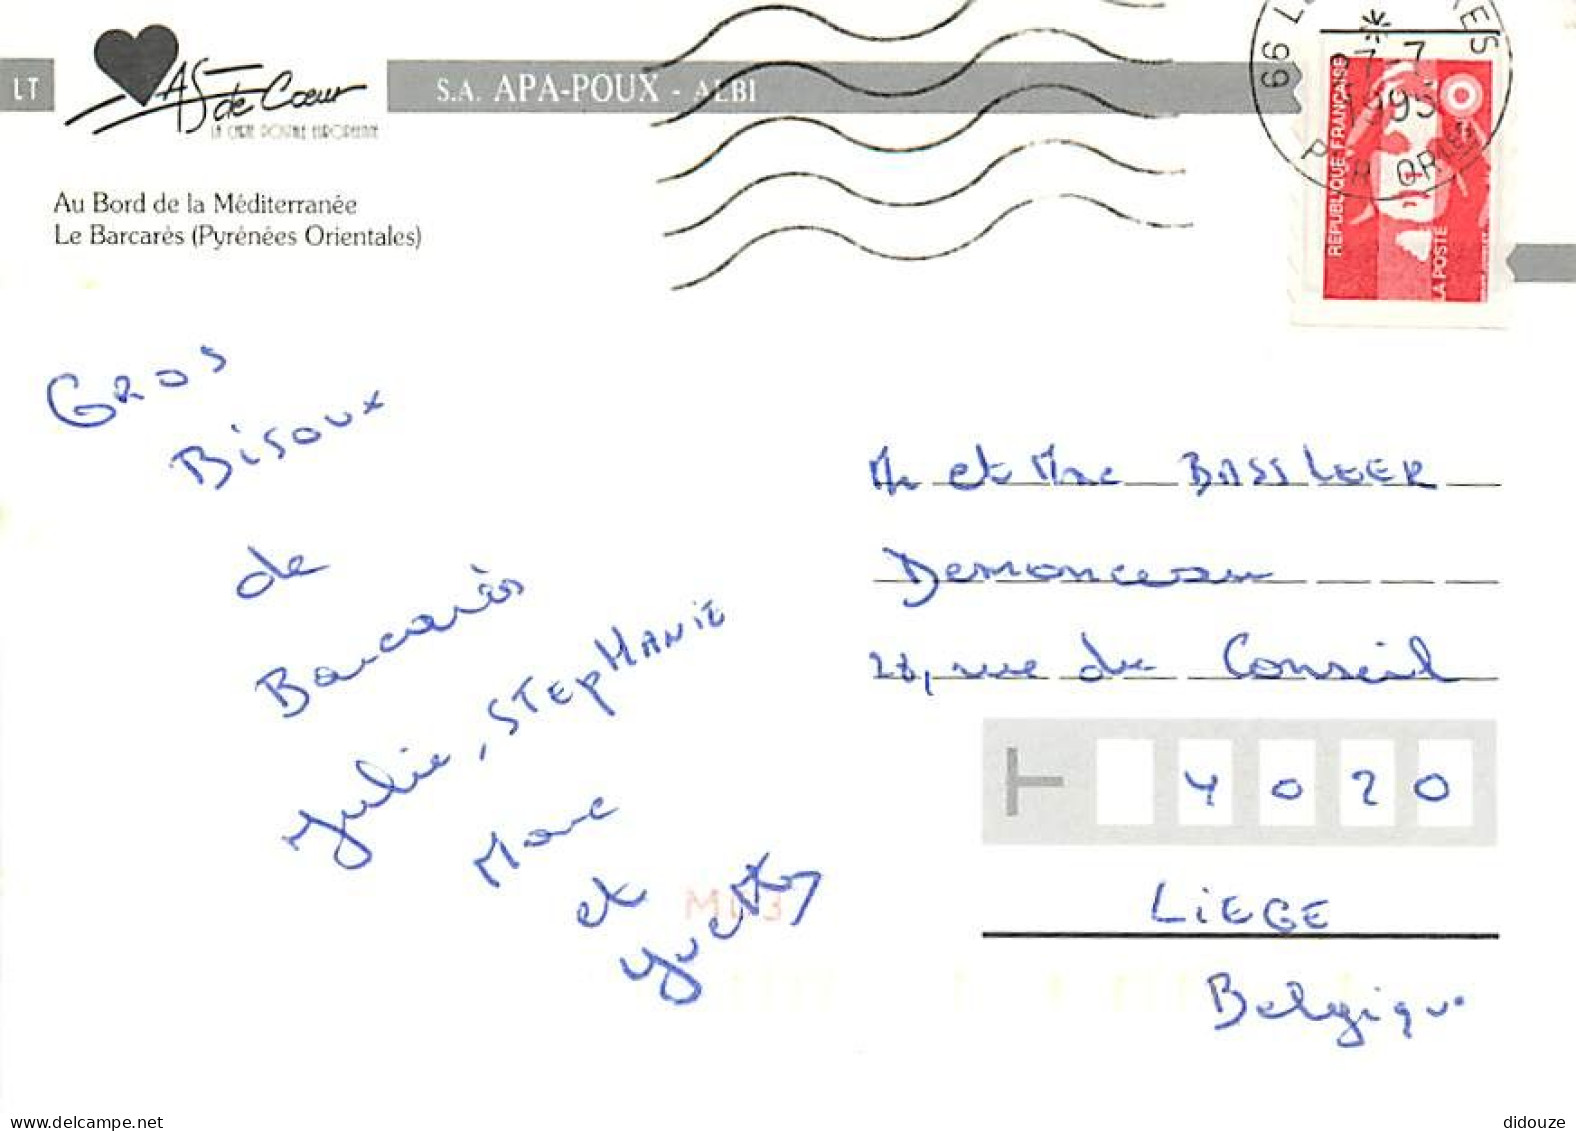 LT
AS de Cœur
LA CARTE POSTALE EUROPÉENNE
S.A. APA-POUX - ALBI
Au Bord de la Méditerranée
Le Barcarès (Pyrénées Orientales)
66 LE
7-7
1995
PYR ORIEN
RÉPUBLIQUE FRANÇAISE
LA POSTE
GROS
Bisoux
de
Barcarès
Julie, STEPHANIE
Marc
et
Yvette
Mr et Mme BASSLEER
Demonceau
28, rue du Conseil
4020
LIEGE
Belgique
delcampe.net
didouze